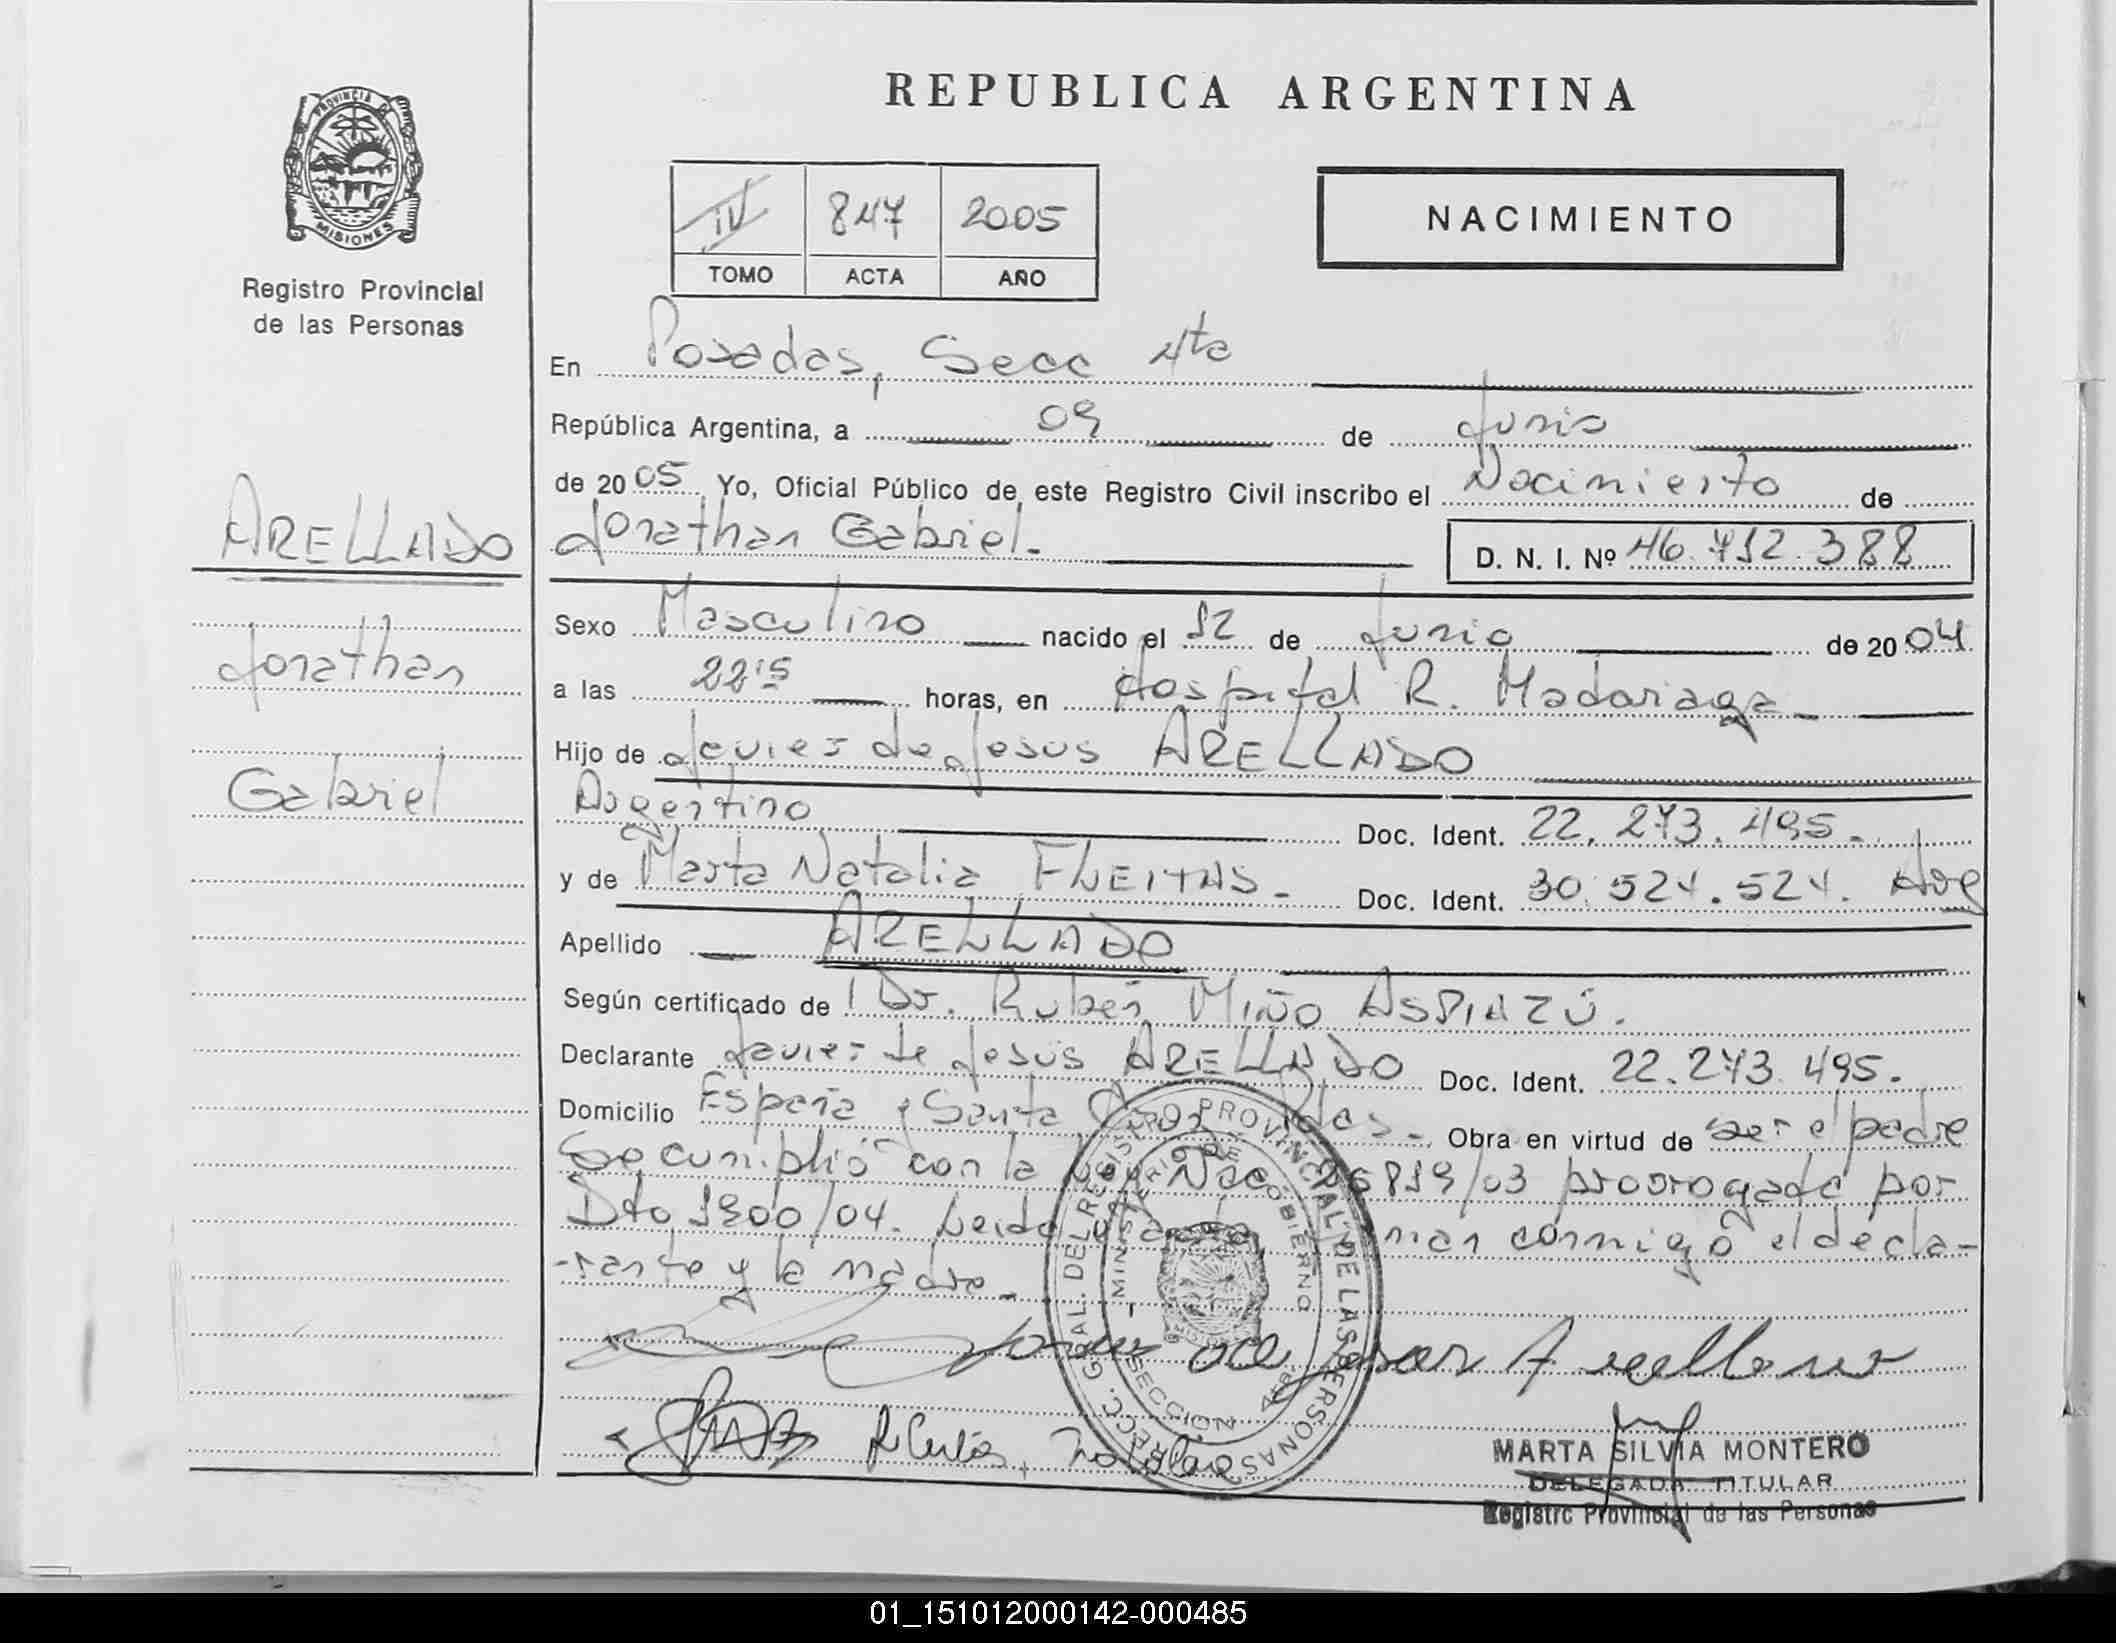 REPUBLICA ARGENTINA
PROVINCIA DE
MISIONES
Registro Provincial
de las Personas
IV 847 2005
TOMO ACTA AÑO
NACIMIENTO
En Posadas, Secc 4ta
República Argentina, a 09 de Junio
de 2005. Yo, Oficial Público de este Registro Civil inscribo el Nacimiento de
ARELLANO
Jonathan Gabriel.-
D. N. I. Nº 46.712.388
Sexo Masculino nacido el 12 de Junio de 2004.
Jonathan
a las 22:15 horas, en Hospital R. Madariaga-
Hijo de Javier de Jesus ARELLANO
Gabriel
Argentino Doc. Ident. 22.273.495.-
y de Marta Natalia FLEITAS.- Doc. Ident. 30.524.524. Arg
Apellido ARELLANO
Según certificado de Dr. Rubén MIÑO ASPIAZÚ.
Declarante Javier de Jesús ARELLANO Doc. Ident. 22.273.495.
Domicilio España y Santa Pdas.- Obra en virtud de ser el padre
Se cumplió con la Ley Nac 25819/03 prorrogada por
Dto 1900/04. Leida firman conmigo el decla-
-rante y la madre.-
RECC. GRAL. DEL REGISTRO PROVINCIAL DE LAS PERSONAS
MINISTERIO DE GOBIERNO
SECCION 4ta
Arellano
MARTA SILVIA MONTERO
DELEGADA TITULAR
Registro Provincial de las Personas
01_151012000142-000485